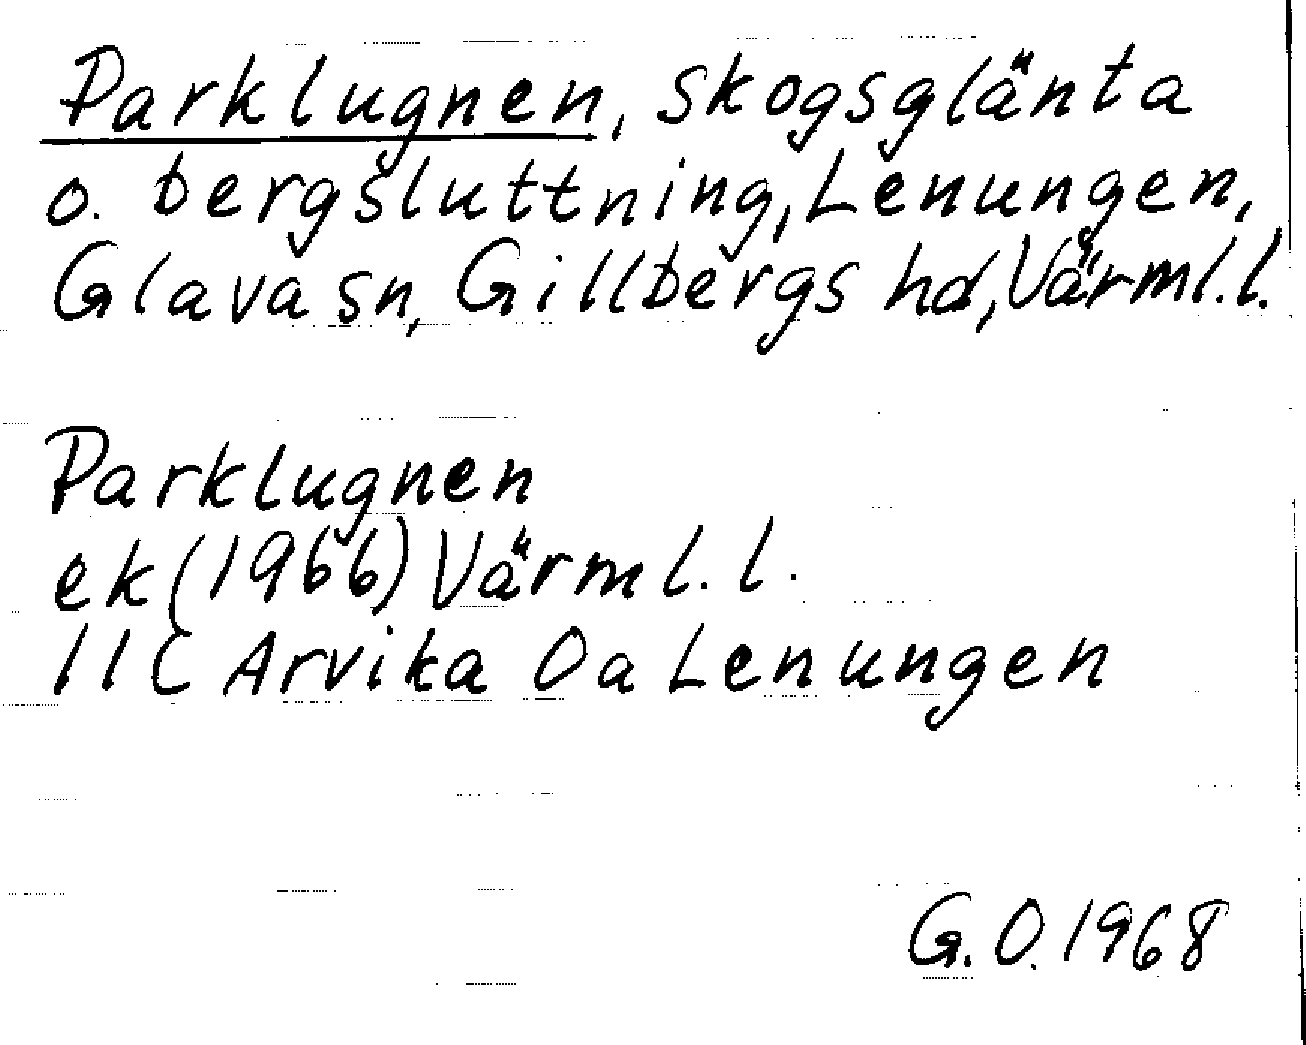 Parklugnen, skogsglänta
o. bergsluttning, Lenungen,
Glava sn, Gillbergs hd, Värml.l.
Parklugnen
ek (1966) Värml.l.
11C Arvika Oa Lenungen
G.O. 1968